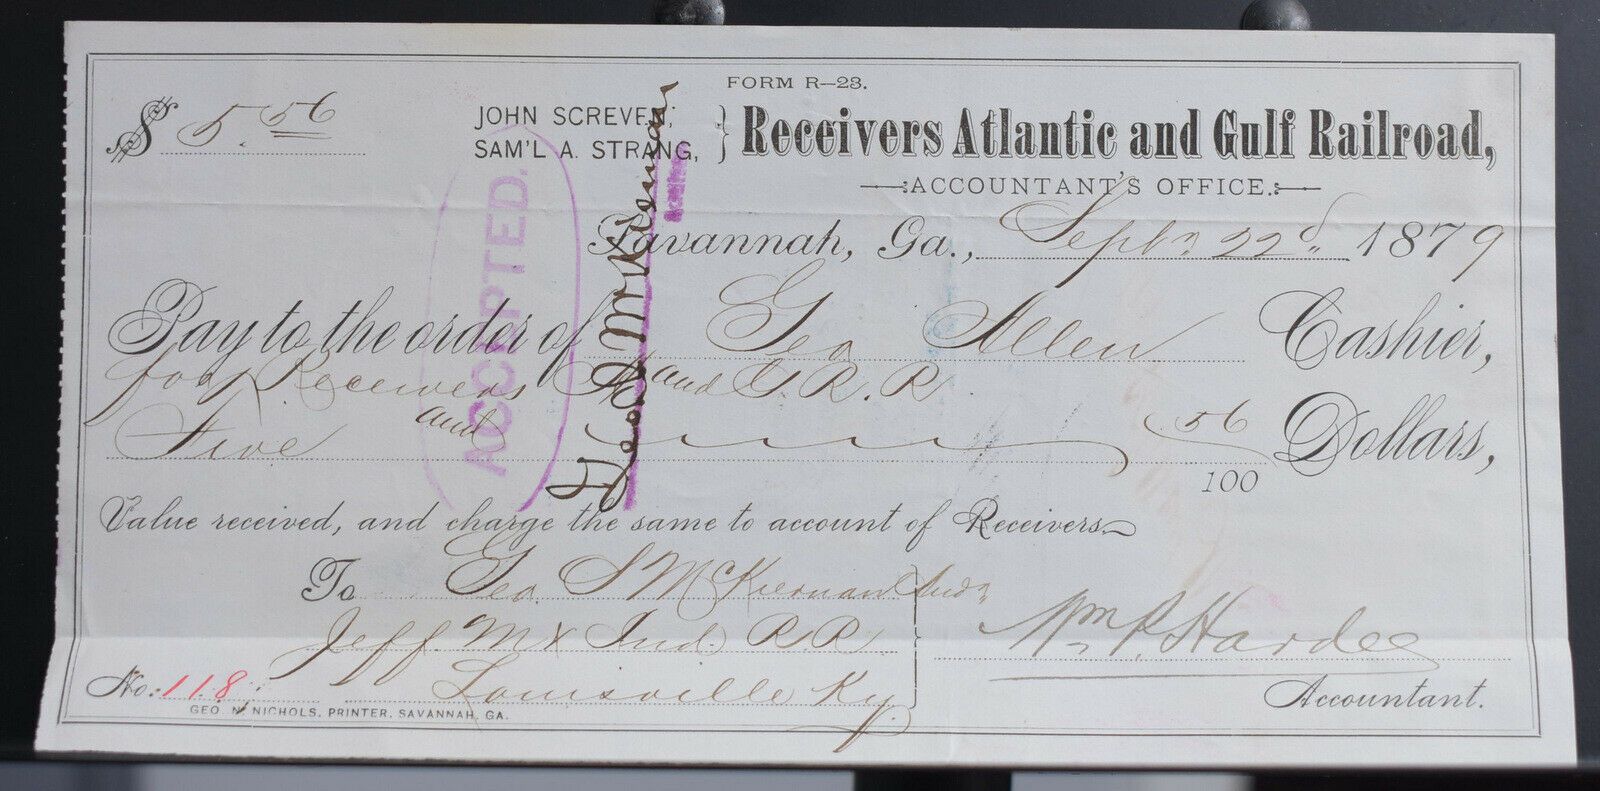 FORM R—23.
$ 5.56
JOHN SCREVEN,
SAM'L A. STRANG,
Receivers Atlantic and Gulf Railroad,
ACCOUNTANT'S OFFICE.
Savannah, Ga., Sept. 22d 1879
Pay to the order of Geo Allen Cashier,
for Receivers A and G R. R
Five and 56/100 Dollars,
Value received, and charge the same to account of Receivers
To Geo. S McKiernan Aud.
Jeff. M & Ind. R. R
Louisville Ky
Wm. P. Hardee
Accountant.
No. 118
GEO. N. NICHOLS, PRINTER, SAVANNAH, GA.
ACCEPTED.
Geo S McKiernan
Auditor